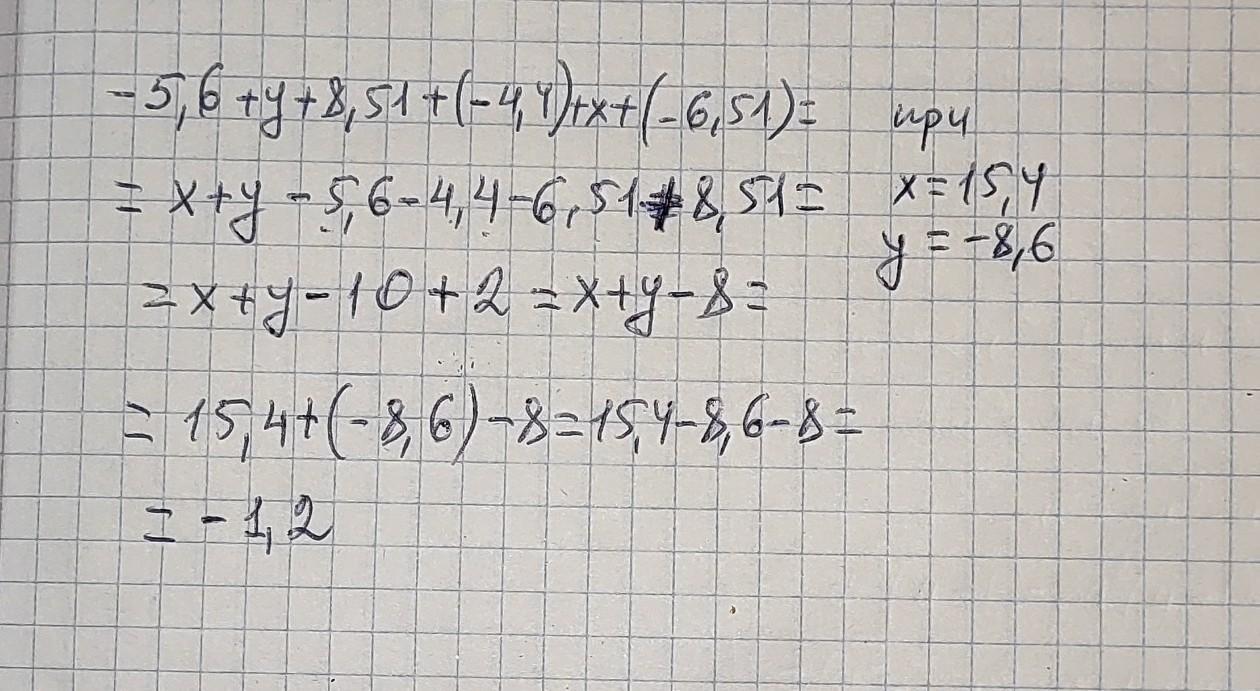 -5,6+y+8,51+(-4,4)+x+(-6,51)= при
= x+y-5,6-4,4-6,51+8,51= x=15,4
y=-8,6
=x+y-10+2=x+y-8=
= 15,4+(-8,6)-8=15,4-8,6-8=
= -1,2